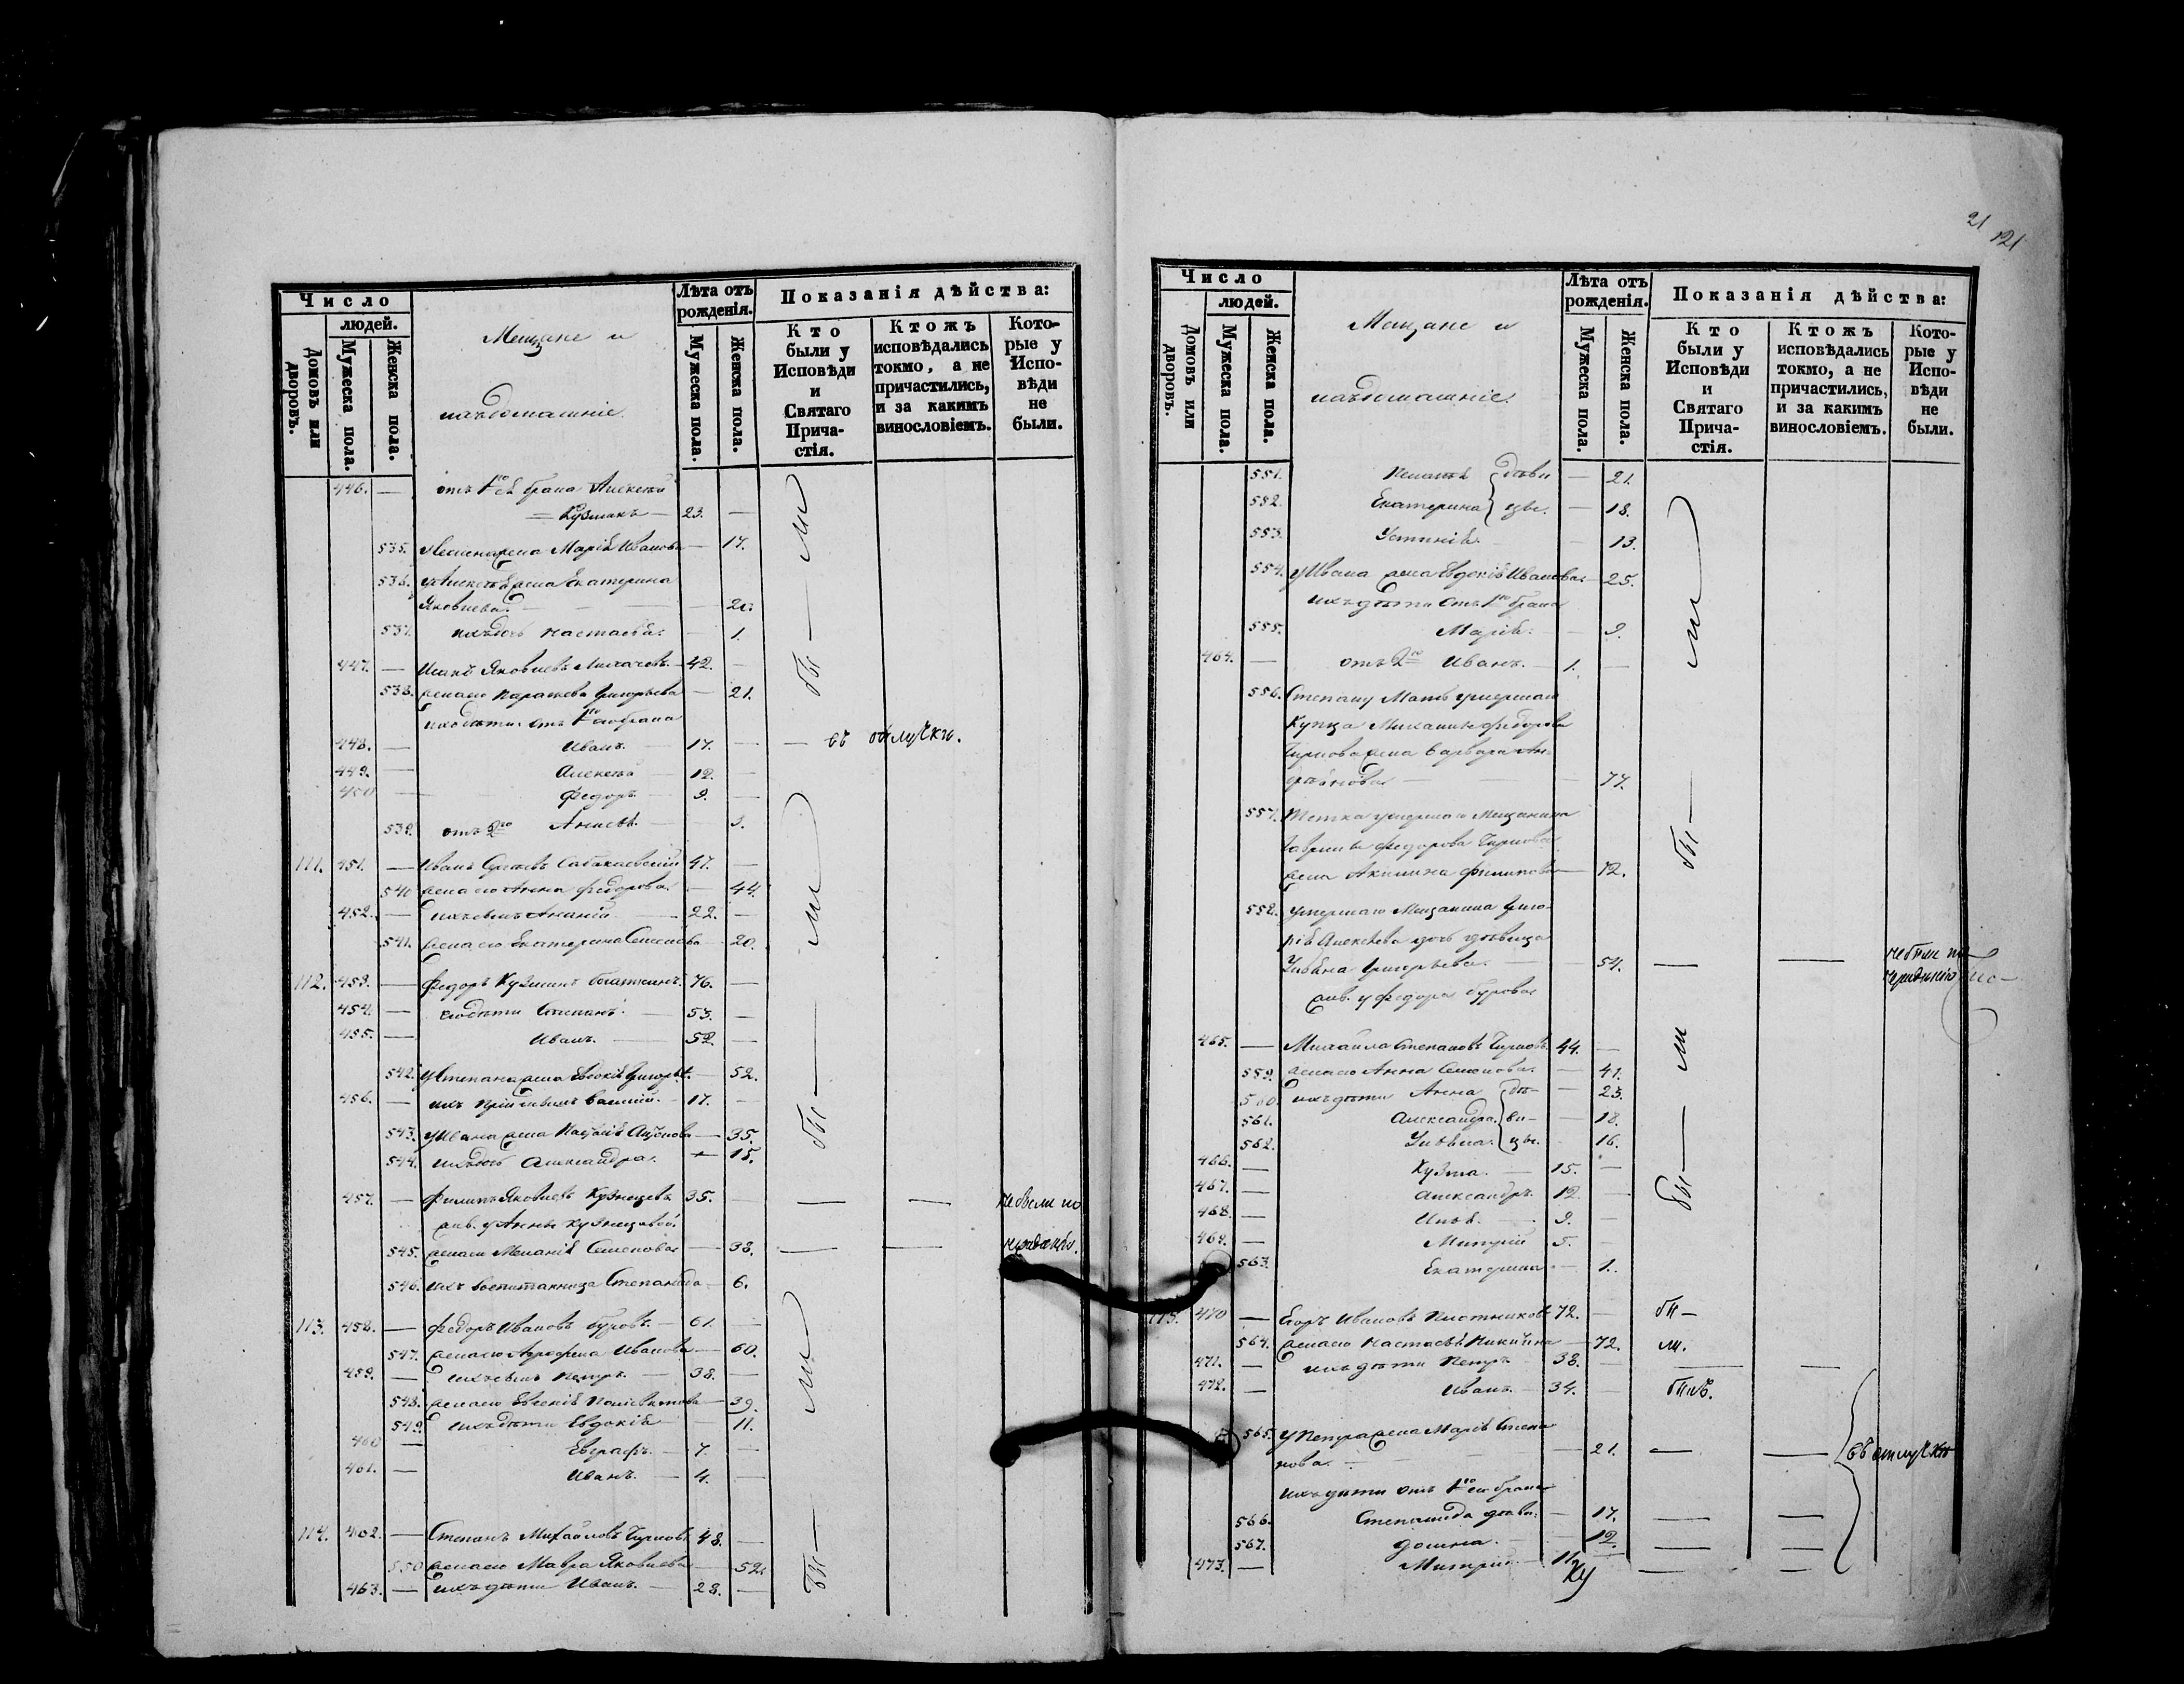 21
121
Число
людей.
Домовъ или дворовъ.
Мужеска пола.
Женска пола.
Мещане и
ихъ домашніе.
Лѣта отъ рожденія.
Мужеска пола.
Женска пола.
Показанія дѣйства:
Кто были у Исповѣди и Святаго Прича-стія.
Ктожъ исповѣдались токмо, а не причастились, и за какимъ винословіемъ.
Кото-рые у Испо-вѣди не были.
446. — отъ 1го брака Алексѣй
= Кузмахъ — 23. —
535. жена Марія Иванова — 17.
536. у Алексѣя жена Екатерина
Яковлева — 20.
537. ихъ дочь Настасья — 1.
447. — Яковлевъ Лихачевъ — 42. —
538. жена его Парасковья Григорьева — 21.
ихъ дѣти отъ 1го его брака
448. — Иванъ — 17. — — въ отлучкѣ.
449. — Алексѣй — 12. —
450 — Федоръ — 9. —
539. отъ 2го — 3.
бы — ли
111. 451. — Иванъ 47. —
540 жена его Анна Федорова — 44.
452. — ихъ сынъ Ананій — 22. —
541. жена его Екатерина Семенова — 20.
112. 453. — Федоръ Кузминъ 76. —
454. — его дѣти Степанъ — 53. —
455. — Иванъ. — 52. —
542. у Степана жена Евдокія Григорьев. — 52.
456. — ихъ сынъ Василій. — 17. —
543. у Ивана жена — 35.
544. ихъ дочь Александра. — 15.
бы — ли
457. — Филипъ Яковлевъ Кузнецовъ 35. — — — не были по
жив. у Анны Кузнецовой.
545. жена его Меланія Семенова — 38. — — нерадѣнію.
546. ихъ воспитанница Степанида — 6.
113. 458. — Федоръ Ивановъ Буровъ. — 61. —
547. жена его Аграфена Иванова — 60.
459. — ихъ сынъ Петръ. — 38. —
548. жена его Евгенія — 39.
549. ихъ дѣти Евдокія — 11.
460 — Евграфъ. — 7. —
461. — Иванъ. — 4. —
114. 462. — Степанъ Михайловъ 48. —
550 жена его Мавра Яковлева — 52.
463. — ихъ дѣти Иванъ. — 28. —
бы — ли
Число
людей.
Домовъ или дворовъ.
Мужеска пола.
Женска пола.
Мещане и
ихъ домашніе.
Лѣта отъ рожденія.
Мужеска пола.
Женска пола.
Показанія дѣйства:
Кто были у Исповѣди и Святаго Прича-стія.
Ктожъ исповѣдались токмо, а не причастились, и за какимъ винословіемъ.
Кото-рые у Испо-вѣди не были.
551. дѣви — 21.
552. Екатерина цы. — 18.
553. Устинія. — 13.
554. у Ивана жена Евдокія Иванова — 25.
ихъ дѣти отъ 1го брака
555. Марія. — 9.
464. — отъ 2го Иванъ. — 1. —
556. Степану мать умершаго
купца Михаила Федорова
жена Варвара Ан-
дреянова — 77.
557. Тетка умершаго мещанина
Гаврила Федорова
жена Акилина Филипова — 72.
558. умершаго мещанина Григо-
рія Алексѣева дочь дѣвица
Ульяна Григорьева. — 54. — — не были по
нерадѣнію
жив. у Федора Бурова
бы — ли
465. — Михайла Степановъ 44. —
559. жена его Анна Семенова. — 41.
560. ихъ дѣти Анна дѣ- — 23.
561. Александра ви- — 18.
562. Ульяна цы. — 16.
466. — Кузма. — 15. —
467. — Александръ. 12. —
468. — Илья. — 9. —
469. — Митрій — 5. —
563. Екатерина — 1.
бы — ли
115. 470 — Егоръ Ивановъ 72. — бы —
564. жена его Настасья Никитина — 72. ли.
471. — ихъ дѣти Петръ 38. — — —
472. — Иванъ — 34. — былъ.
565. у Петра жена Марія Степа
нова. — 21. — — въ отлучкѣ
ихъ дѣти отъ 1го его брака
566. Степанида дѣви. — 17. — —
567. Домна. — 12. — —
473. — Митрій. — 11. — — —